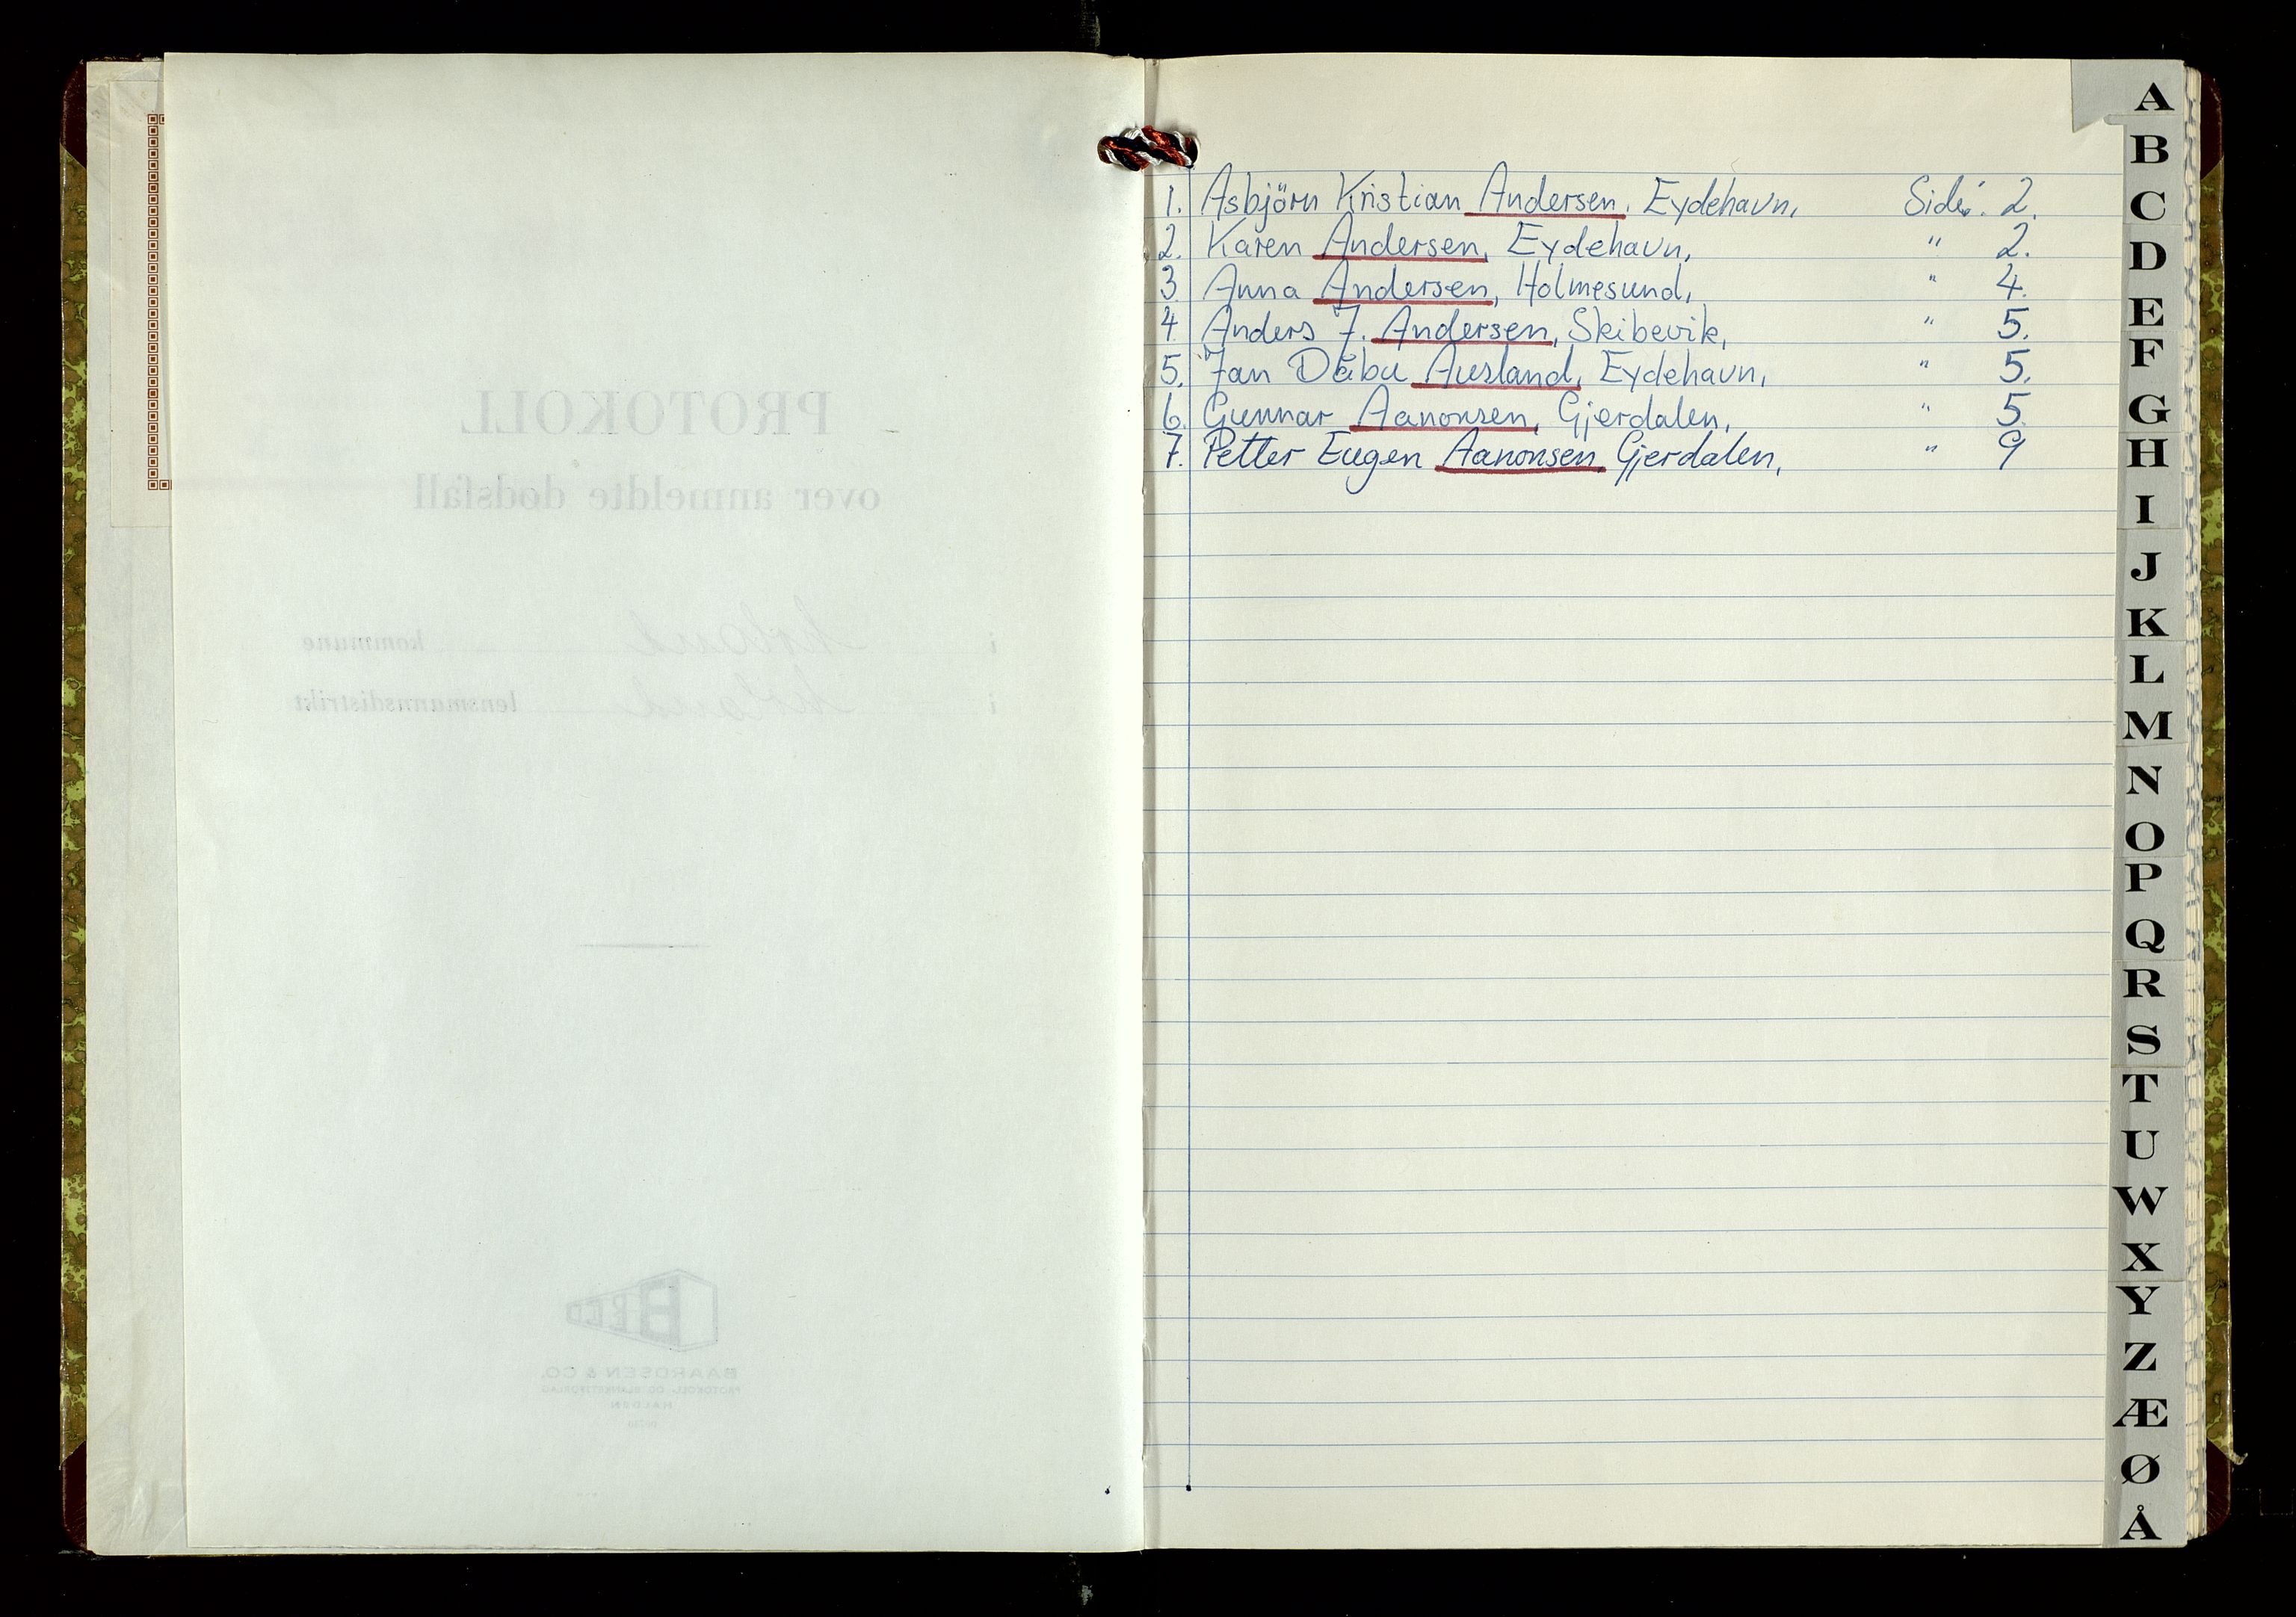 PROTOKOLL
over anmeldte dødsfall
i kommune
i lensmannsdistrikt
BECO
BAARDSEN & CO.
PROTOKOLL- OG BLANKETTFORLAG
HALDEN
1. Asbjörn Kristian Andersen. Eydehavn, Side. 2.
2. Karen Andersen, Eydehavn, " 2.
3. Anna Andersen, Holmesund, " 4.
4. Anders J. Andersen, Skibevik, " 5.
5. Jan Dåbu Ausland, Eydehavn, " 5.
6. Gunnar Aanonsen, Gjerdalen, " 5.
7. Petter Eugen Aanonsen, Gjerdalen, " 9
A
B
C
D
E
F
G
H
I
J
K
L
M
N
O
P
Q
R
S
T
U
W
X
Y
Z
Æ
Ø
Å